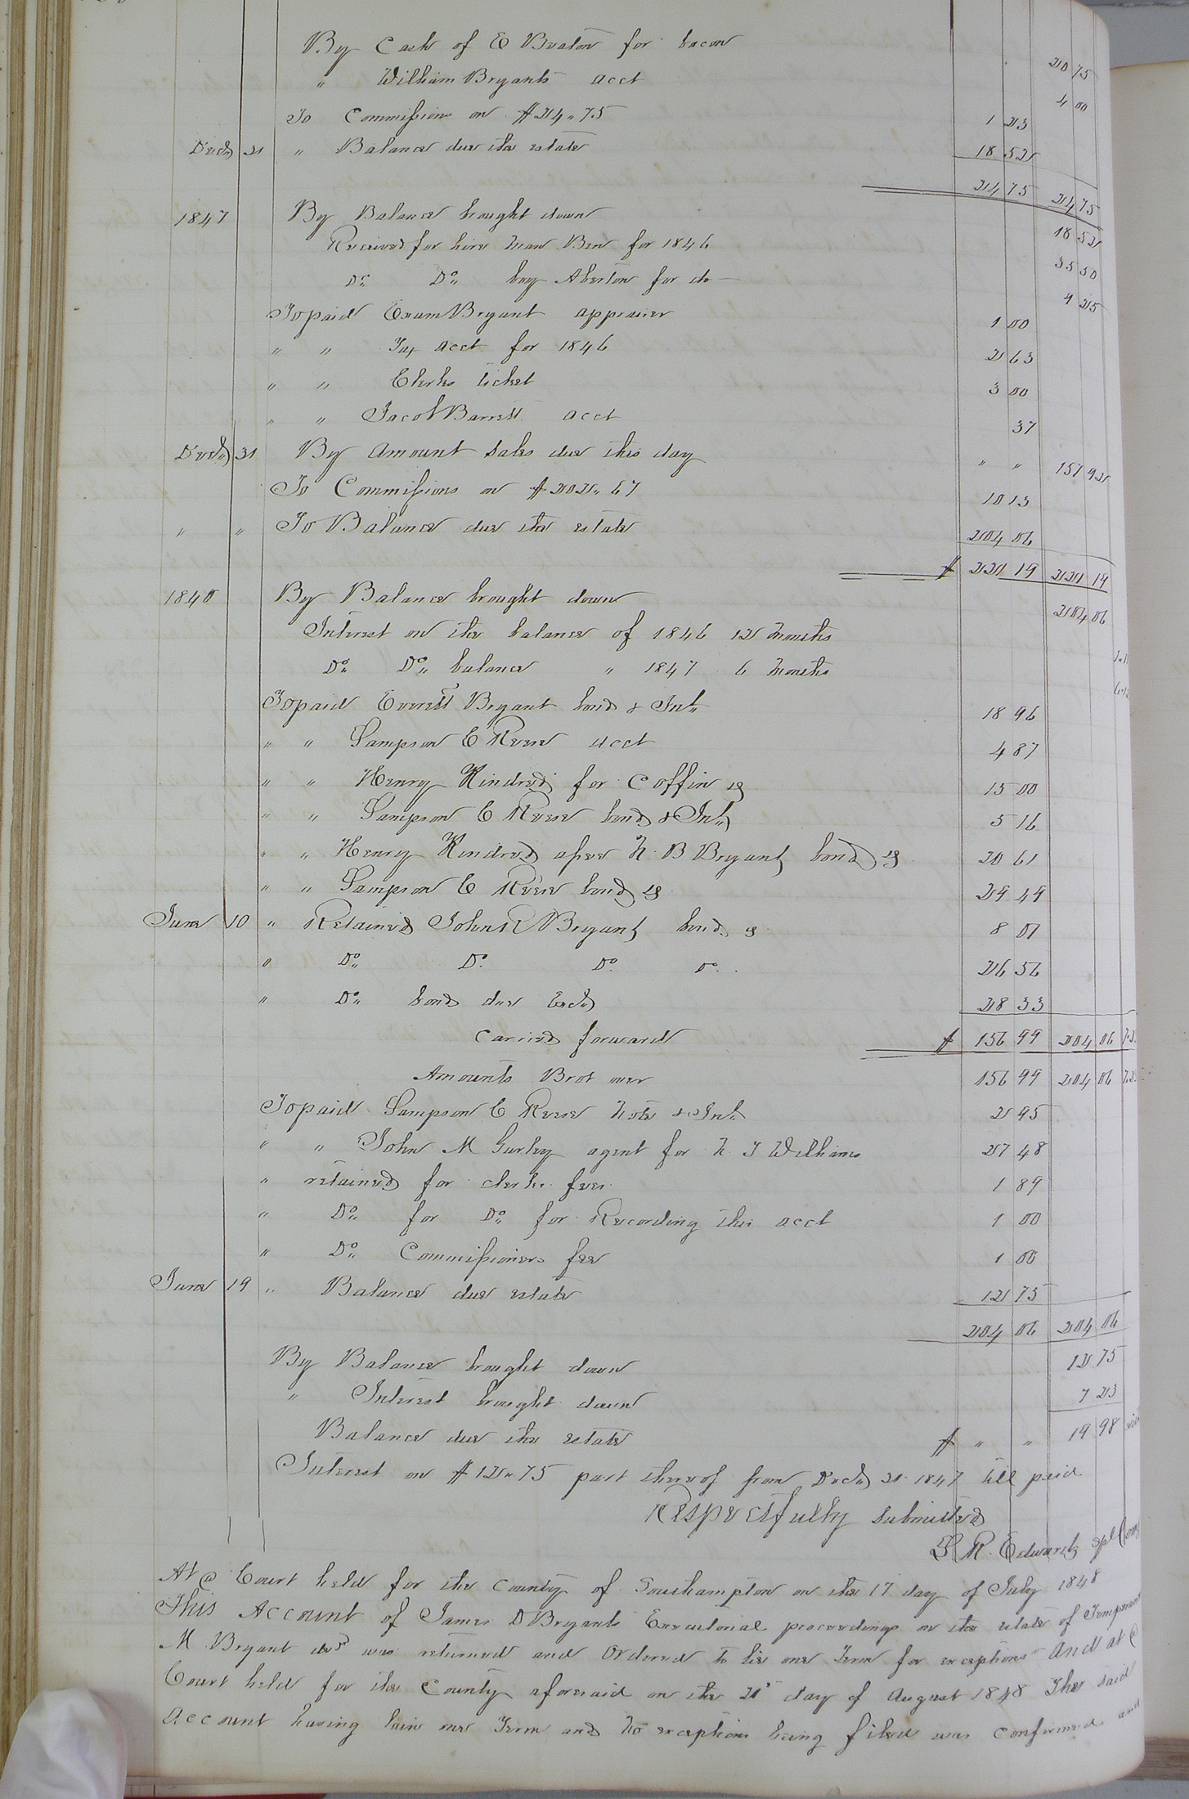 By Cash of E Beaton for bacon 20 75
" William Bryants acct 4 00
To Commissions on $24.75 1 23
Decr 31 " Balance due the estate 18 52
24 75 24 75
1847 By Balance brought down 18 52
Received for hire man Ben for 1846 35 50
Do Do boy Aberton for do 4 25
To paid Exum Bryant appraiser 1 00
" " Tax acct for 1846 2 63
" " Clerks ticket 3 00
" " Jacob Barrett acct 37
Decr 31 By Amount Sales due this day " " 157 92
To Commissions on $202.67 10 13
" " To Balance due the estate 204 06
$ 221 19 221 19
1848 By Balance brought down 204 06
Interest on the balance of 1846 12 months
Do Do balance " 1847 6 months
To paid Everett Bryant bond & Int 18 96
" " Sampson C Reese acct 4 87
" " Henry Kindred for Coffin 15 00
" " Sampson C Reese bond & Int 5 16
" " Henry Kindred assee N. B Bryant bond 20 61
" " Sampson C Reese bond 29 49
June 10 " Retained John R Bryant bond 8 01
" Do Do Do Do 26 56
" Do bond due Exor 28 33
Carried forward $ 156 99 204 06
Amounts Brot over 156 99 204 06
To paid Sampson C Reese note & Int 2 95
" " John M Gurley agent for N. T Williams 27 48
" retained for clerks fees 1 89
" Do for Do for Recording this acct 1 00
" Do Commissioners fee 1 00
June 19 " Balance due estate 12 75
204 06 204 06
By Balance brought down 12 75
" Interest brought down 7 23
Balance due the estate $ " " 19 98
Interest on $12.75 part thereof from Decr 31 1847 till paid
Respectfully Submitted
R. Edwards spl Com
At a Court held for the County of Southampton on the 17 day of July 1848
This Account of James D Bryants Executorial proceedings on the estate of
M Bryant decd was returned and Ordered to lie one Term for exceptions And at a
Court held for the County aforesaid on the 21st day of August 1848 The said
Account having lain one Term and no exceptions being filed was confirmed and